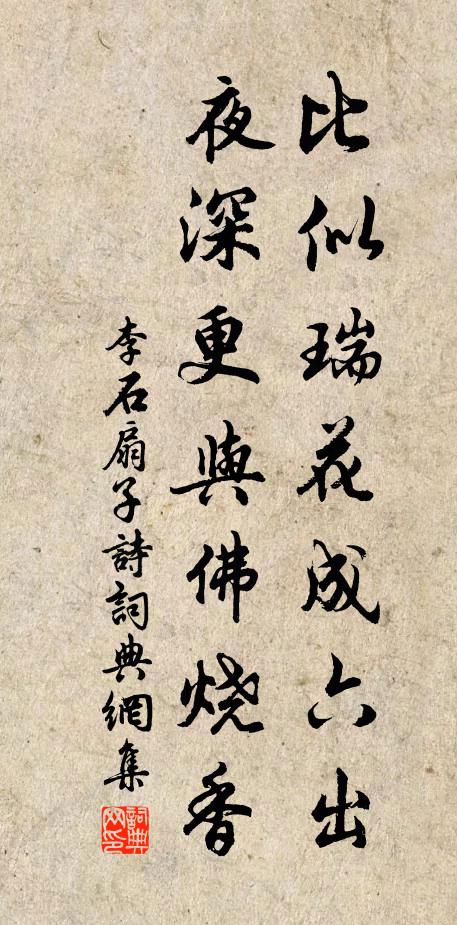 比似瑞花成六出
夜深更與佛燒香
李石扇子詩詞典網集
詞典網印